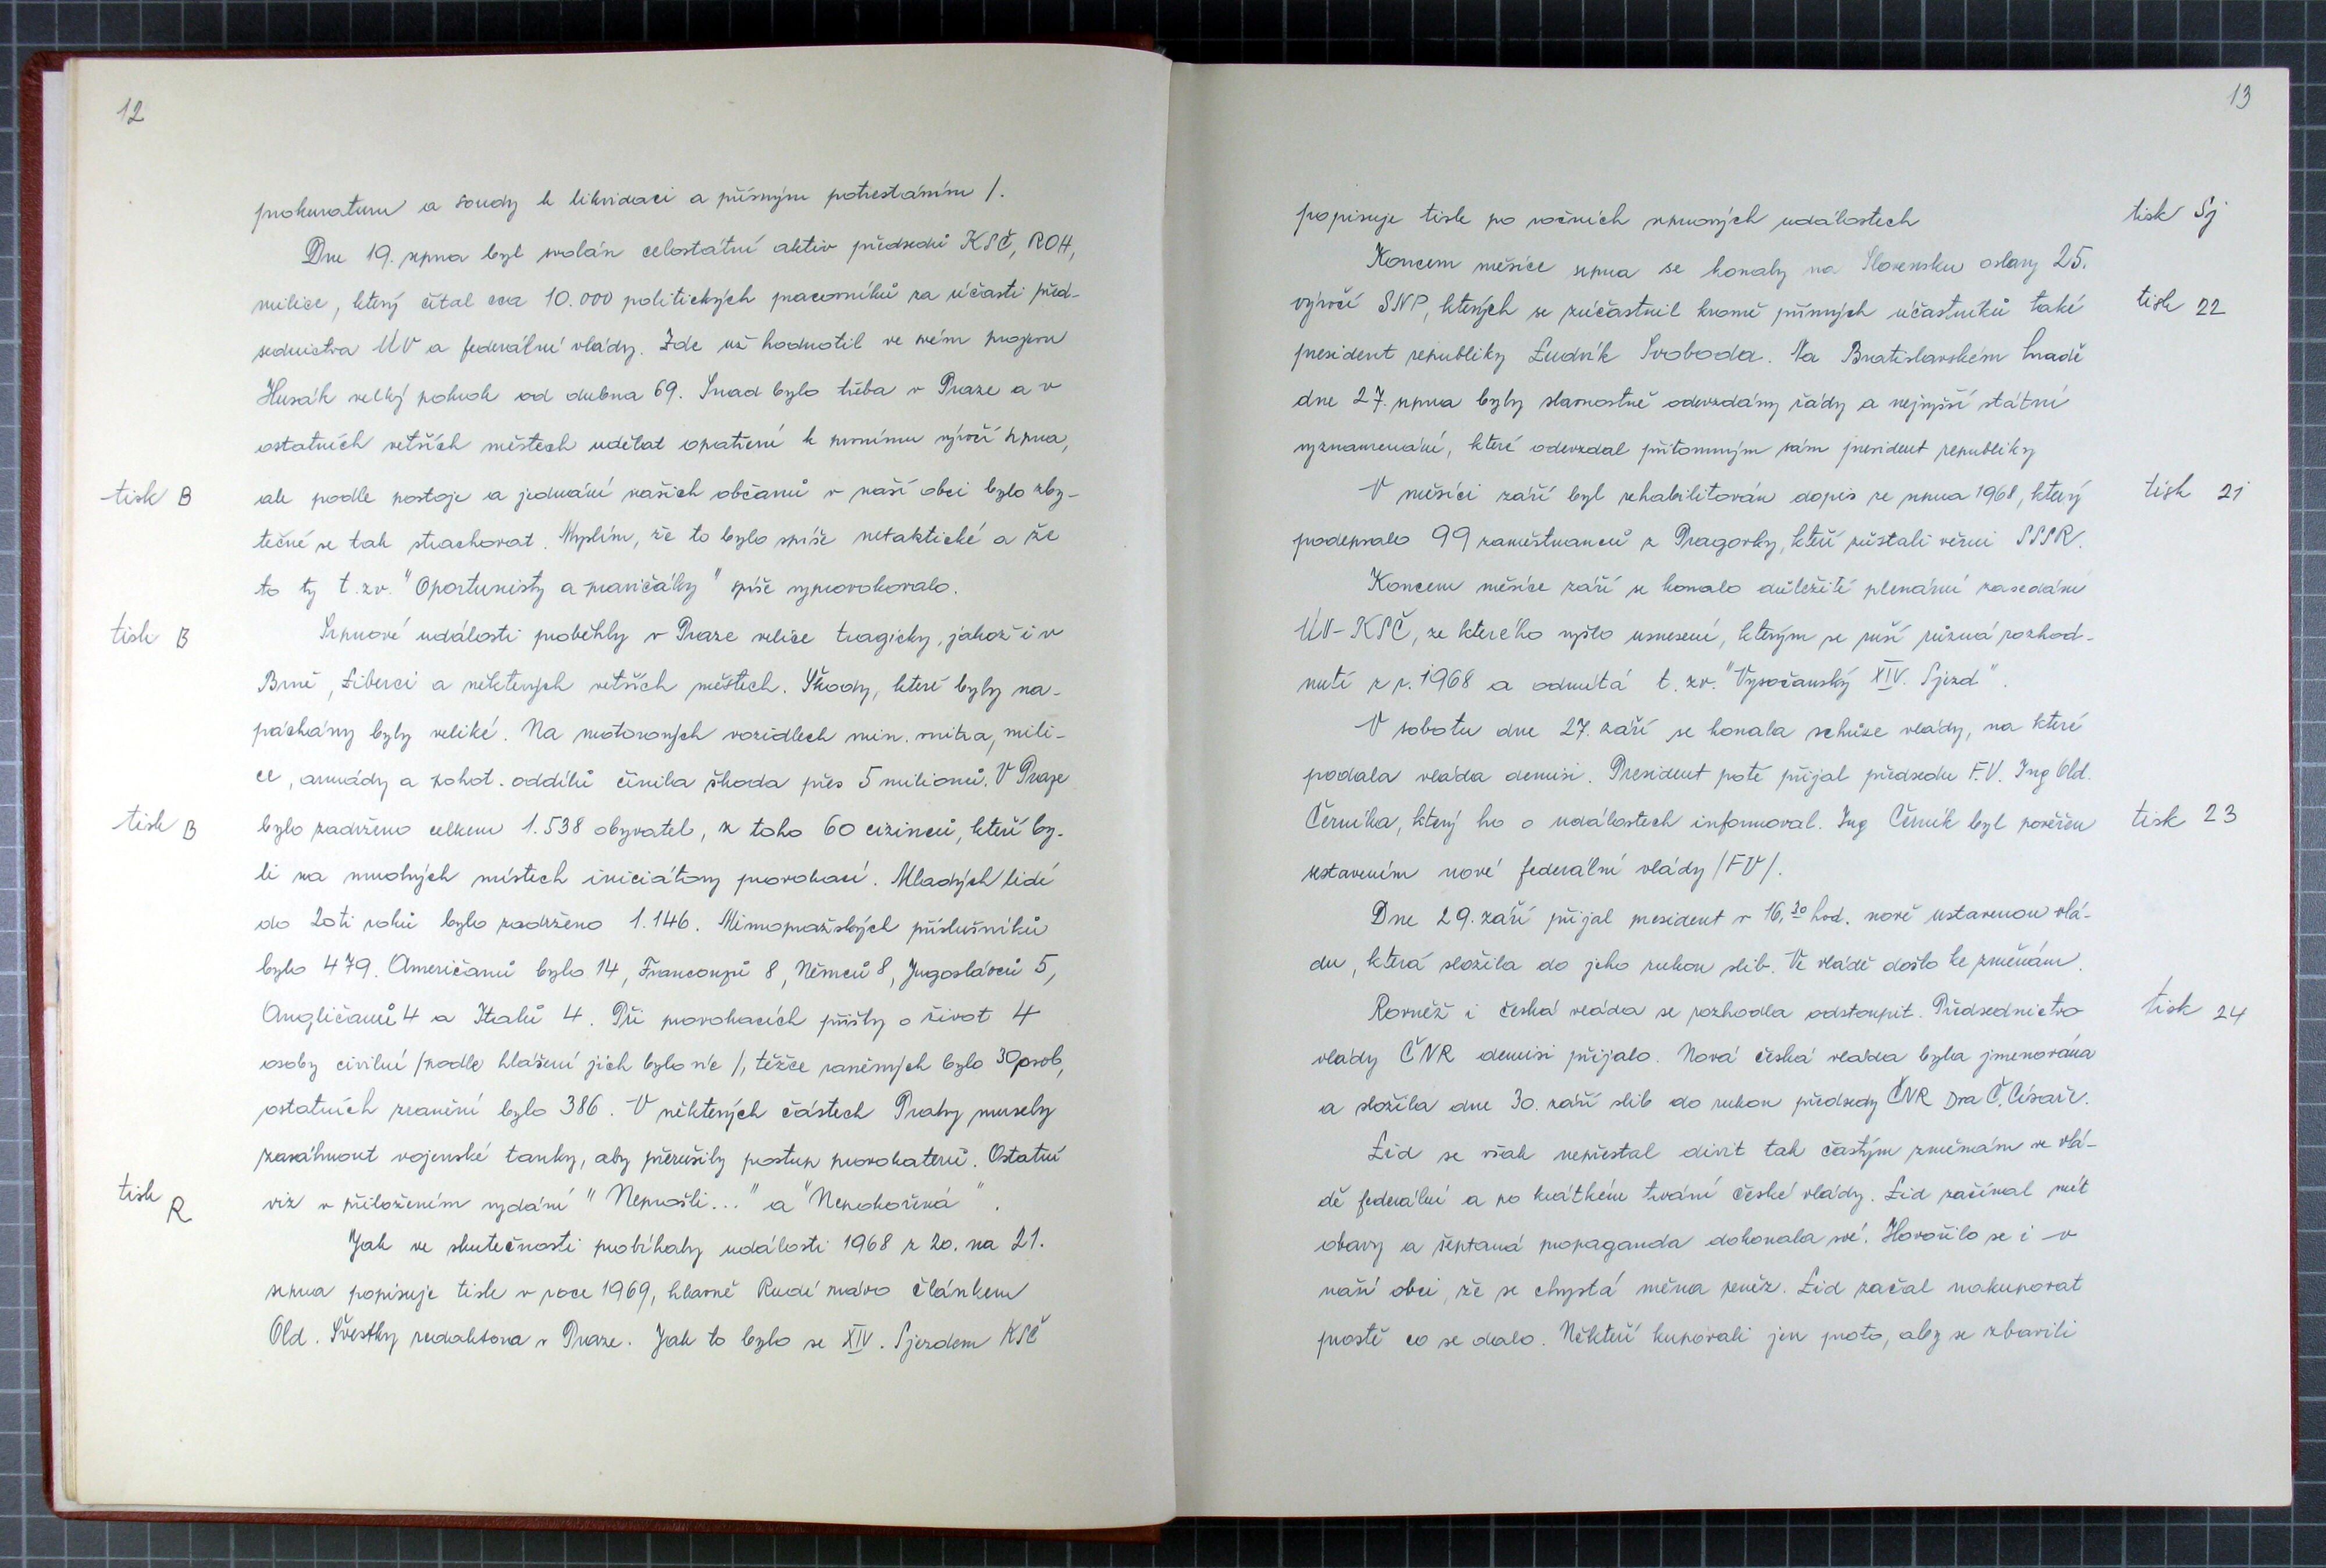 12
prokuraturu a soudy k likvidaci a přísným potrestáním /.
Dne 19. srpna byl svolán celostátní aktiv předsedů KSČ, ROH,
milice, který čítal cca 10.000 politických pracovníků za účasti před-
sednictva ÚV a federální vlády. Zde už hodnotil ve svém projevu
Husák velký pokrok od dubna 69. Snad bylo třeba v Praze a v
ostatních větších městech udělat opatření k prvnímu výročí srpna,
tisk B ale podle postoje a jednání našich občanů v naší obci bylo zby-
tečné se tak strachovat. Myslím, že to bylo spíše netaktické a že
to ty t.zv. "Oportunisty a pravičáky" spíš vyprovokovalo.
tisk B Srpnové události proběhly v Praze velice tragicky, jakož i v
Brně, Liberci a některých větších městech. Škody, které byly na-
páchány byly veliké. Na motorových vozidlech min. vnitra, mili-
ce, armády a pohot. oddílů činila škoda přes 5 milionů. V Praze
tisk B bylo zadrženo celkem 1.538 obyvatel, z toho 60 cizinců, kteří by-
li na mnohých místech iniciátory provokací. Mladých lidí
do 20ti roků bylo zadrženo 1.146. Mimopražských příslušníků
bylo 479. Američanů bylo 14, Francouzů 8, Němců 8, Jugoslávců 5,
Angličanů 4 a Italů 4. Při provokacích přišly o život 4
osoby civilní /podle hlášení jich bylo víc /, těžce raněných bylo 30 osob,
ostatních zranění bylo 386. V některých částech Prahy musely
zasáhnout vojenské tanky, aby přerušily postup provokatérů. Ostatní
tisk R viz v přiloženém vydání "Neprošli..." a "Nepokořená".
Jak ve skutečnosti probíhaly události 1968 z 20. na 21.
srpna popisuje tisk v roce 1969, hlavně Rudé právo článkem
Old. Švestky redaktora v Praze. Jak to bylo se XIV. Sjezdem KSČ
13
popisuje tisk po ročních srpnových událostech tisk Sj
Koncem měsíce srpna se konaly na Slovensku oslavy 25.
výročí SNP, kterých se zúčastnil kromě přímých účastníků také tisk 22
president republiky Ludvík Svoboda. Na Bratislavském hradě
dne 27. srpna byly slavnostně odevzdány řády a nejvyšší státní
vyznamenání, které odevzdal přítomným sám president republiky
V měsíci září byl rehabilitován dopis ze srpna 1968, který tisk 21
podepsalo 99 zaměstnanců z Pragovky, kteří zůstali věrni SSSR.
Koncem měsíce září se konalo důležité plenární zasedání
ÚV-KSČ, ze kterého vyšlo usnesení, kterým se ruší různá rozhod-
nutí z r. 1968 a odmítá t.zv. "Vysočanský XIV. Sjezd".
V sobotu dne 27. září se konala schůze vlády, na které
podala vláda demisi. President poté přijal předsedu F.V. Ing Old.
Černíka, který ho o událostech informoval. Ing Černík byl pověřen tisk 23
sestavením nové federální vlády /FV/.
Dne 29. září přijal president v 16,30 hod. nově ustavenou vlá-
du, která složila do jeho rukou slib. Ve vládě došlo ke změnám.
Rovněž i česká vláda se rozhodla odstoupit. Předsednictvo tisk 24
vlády ČNR demisi přijalo. Nová česká vláda byla jmenována
a složila dne 30. září slib do rukou předsedy ČNR Dra Č. Císaře.
Lid se však nepřestal divit tak častým změnám ve vlá-
dě federální a po krátkém trvání české vlády. Lid začínal mít
obavy a šeptaná propaganda dokonala své. Hovořilo se i v
naší obci, že se chystá měna peněz. Lid začal nakupovat
prostě co se dalo. Někteří kupovali jen proto, aby se zbavili